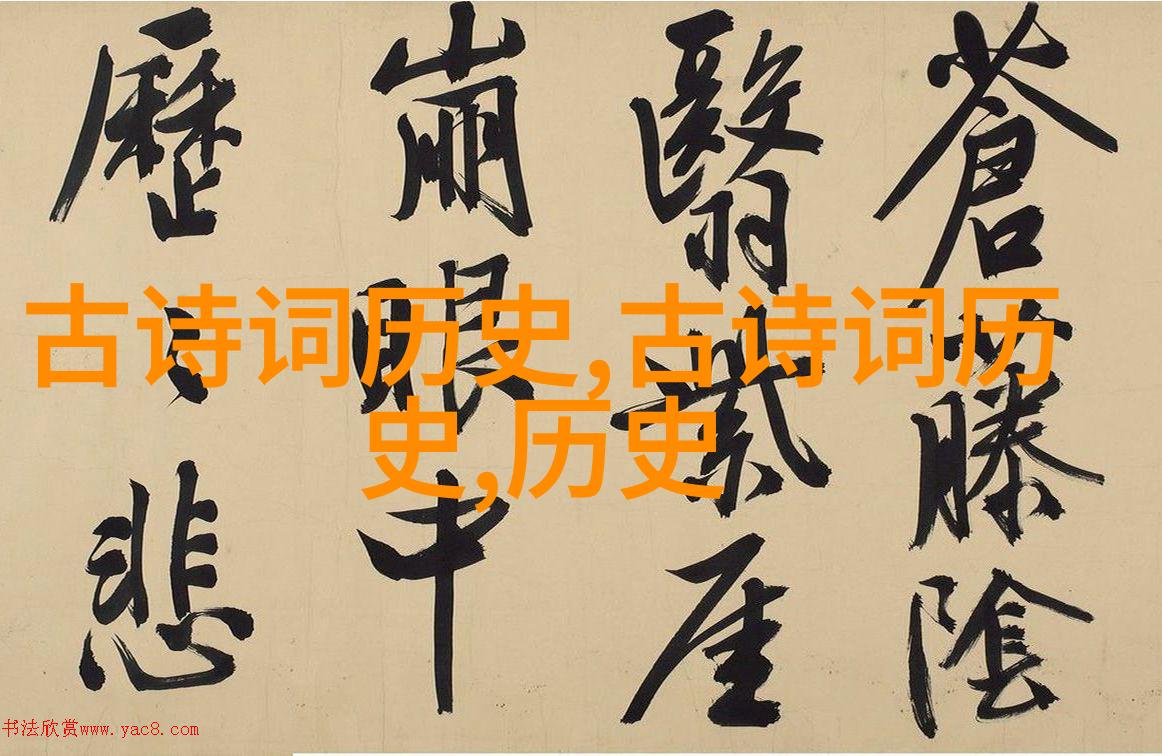 蒼藤陰
翳厓
崩眼中
歷〻悲
古诗词历史,古诗词历
史,历史
书法欣赏www.yac8.com